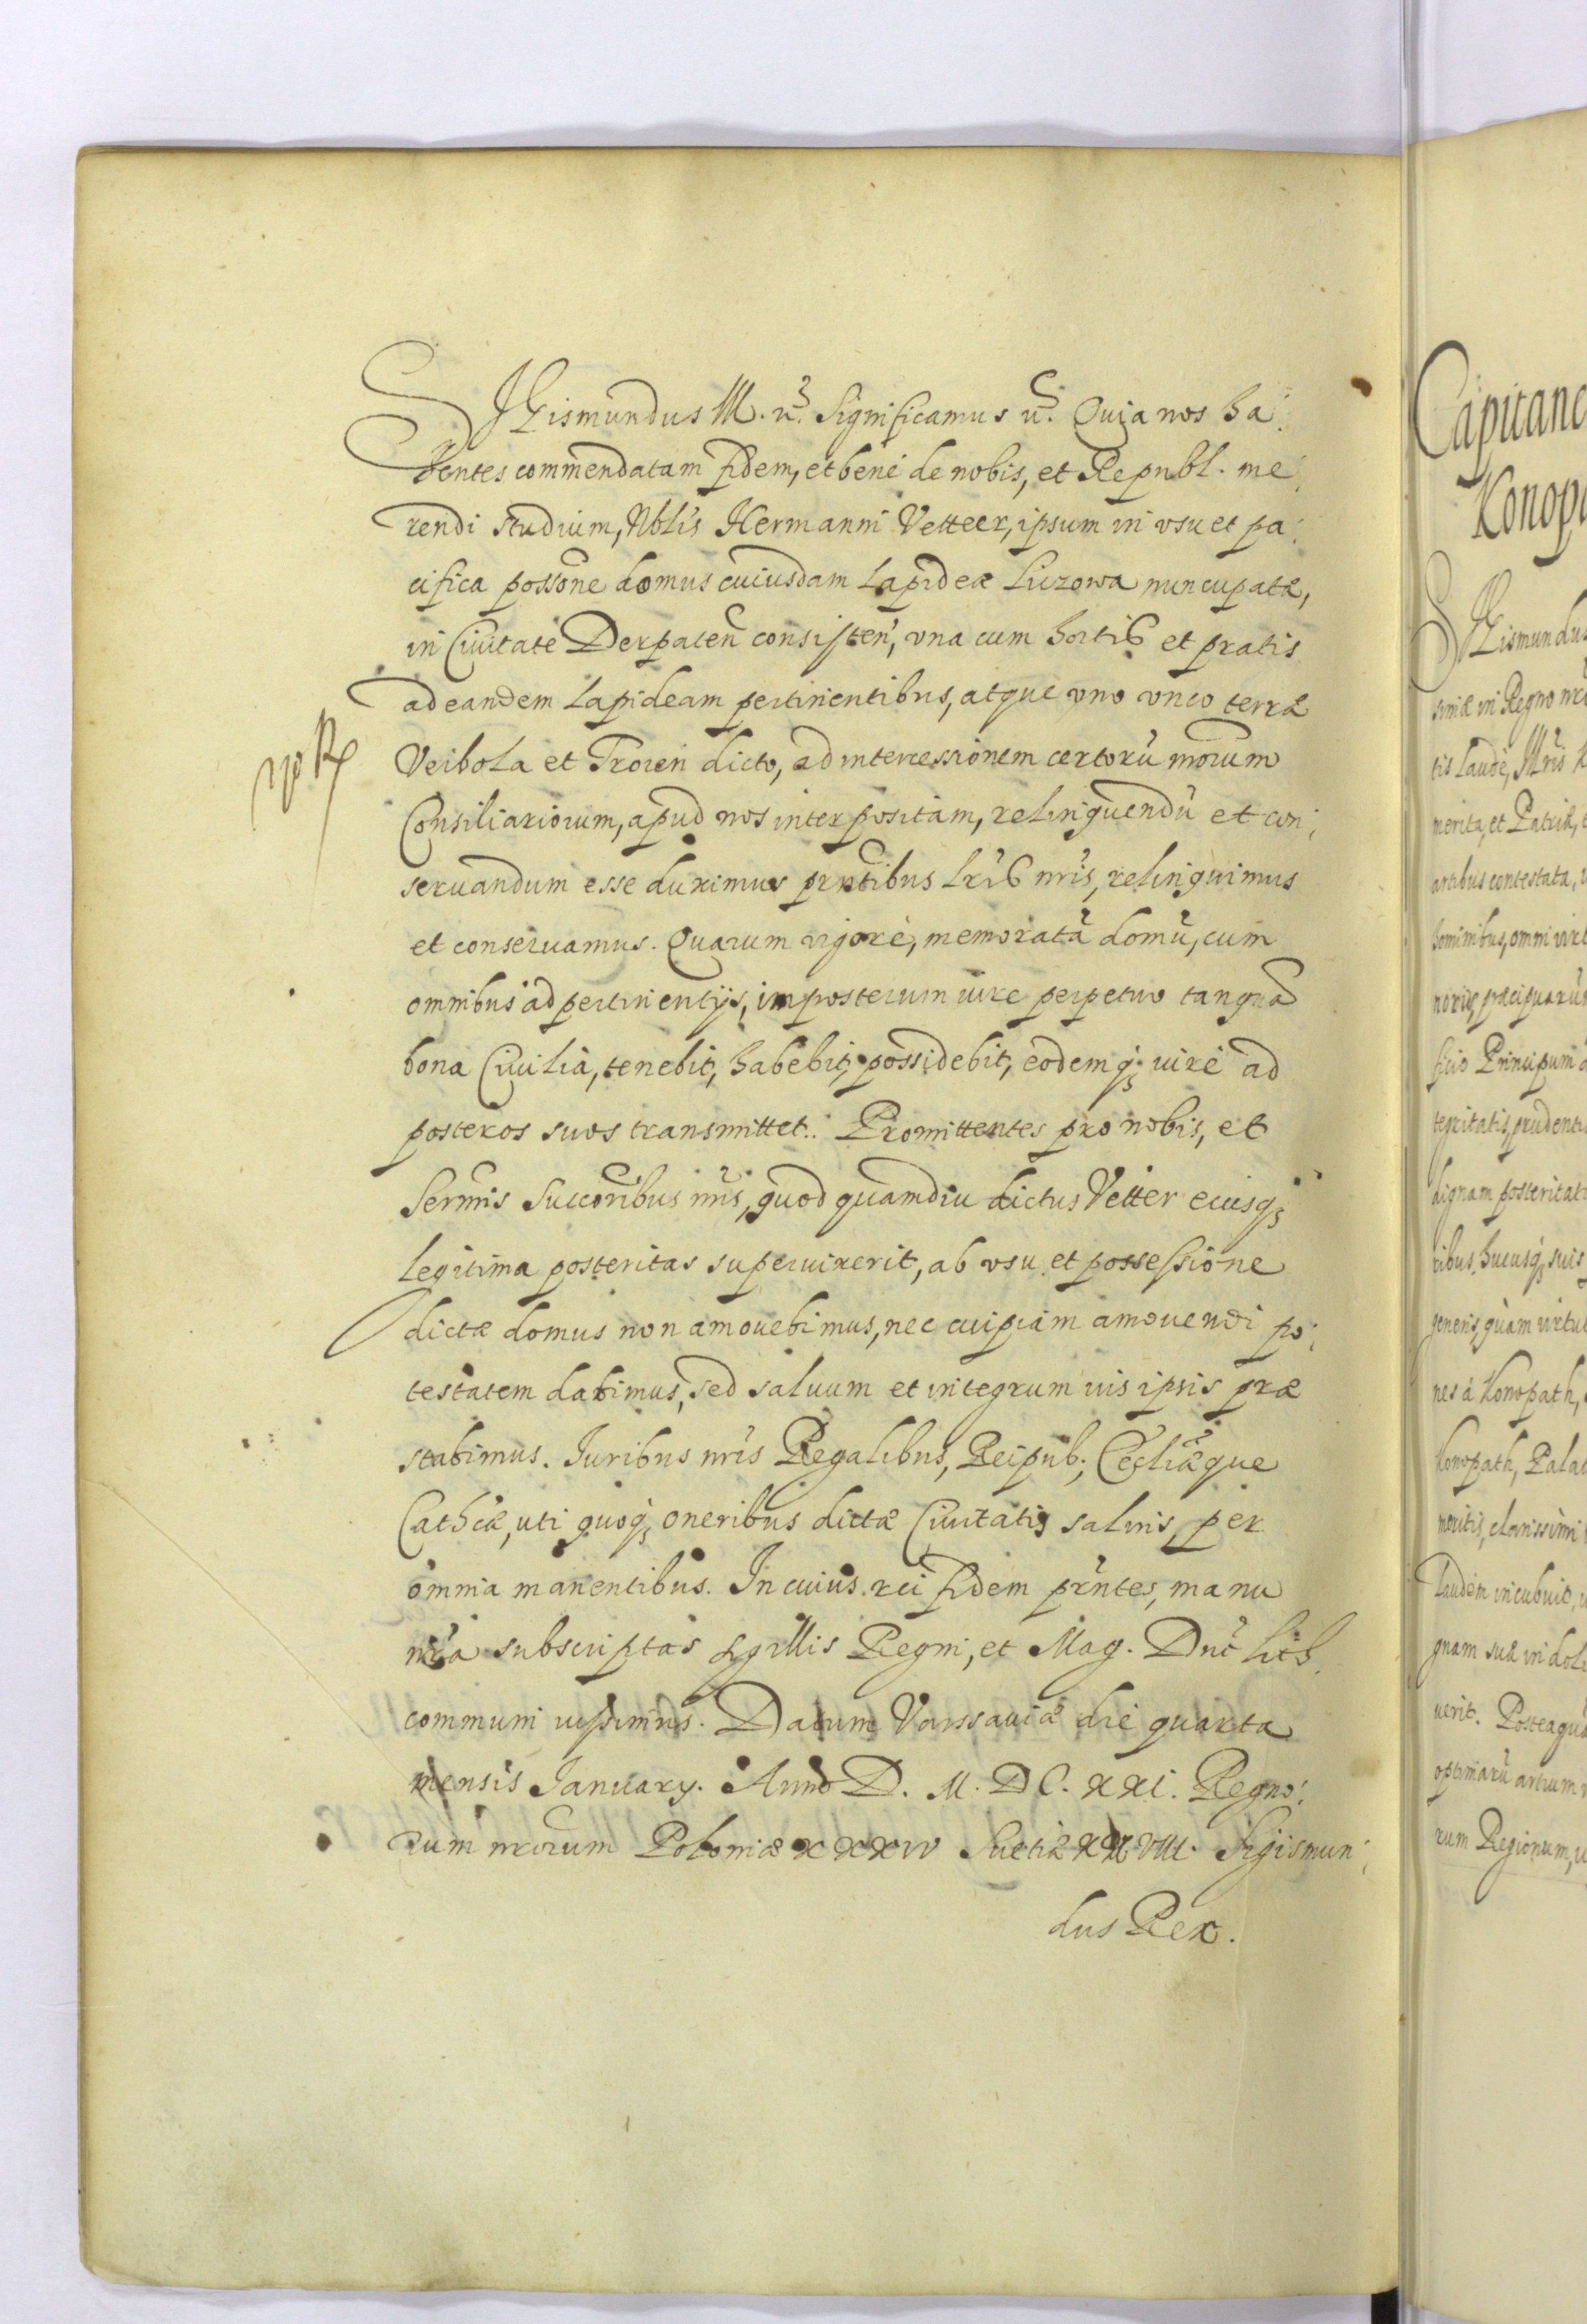 SIGismundus III. &c. Significamus &c. Quia nos ha:
bentes commendatam fidem, et bene de nobis, et Republ. me:
rendi studium, Nblis Hermanni Vetteer, ipsum in vsu et pa:
cifica possone domus cuiusdam lapideæ Liczowa nuncupatæ,
in Ciuitate Derpaten consisten, vna cum hortis et pratis
ad eandem lapideam pertinentibus, atque vno vnco terræ
Veibola et Troien dicto, ad intercessionem certorũ nrorum
Consiliariorum, apud nos interpositam, relinquendũ et con:
seruandum esse duximus prntibus lris nris, relinquimus
et conseruamus. Quarum vigore, memoratã domũ, cum
omnibus ad pertinentijs, imposterum iure perpetuo tanquã
bona Ciuilia, tenebit, habebit, possidebit, eodemq; iure ad
posteros suos transmittet. Promittentes pro nobis, et
Sermis Succoribus nris, quod quamdiu dictus Vetter eiusq;
legitima posteritas superuixerit, ab vsu et possessione
dictæ domus non amouebimus, nec cuipiam amouendi po:
testatem dabimus, sed saluum et integrum ius ipsis præ
stabimus. Iuribus nris Regalibus, Reipub; Eccliæque
Cathcæ, uti quoq; oneribus dictæ Ciuitatis saluis, per
omnia manentibus. In cuius rei fidem prntes, manu
nra subscriptas sigillis Regni, et Mag. Duc Lith.
communi iussimus. Datum Varssauiæ die quarta
mensis January. Anno D. M. DC. XXI. Regno:
rum nrorum Poloniæ XXXIV Suetiæ XXVIII. Sigismun:
dus Rex.
Capitane
Konopa
SIGismundus
simæ in Regno nro
tis laude,
merita, et Patriæ,
artibus contestata,
hominibus, omni virt
præcipuarũ
Principum
tegritatis, prudenti
dignam posteritati
ribus hucusq; suis
generis, quam virtut
nes à Konopath,
Konopath, Palat
meritis, clarissimi
laudem incubuit,
gnam suæ indoli
uerit. Posteaquã
optimarũ artium
rum Regionum,